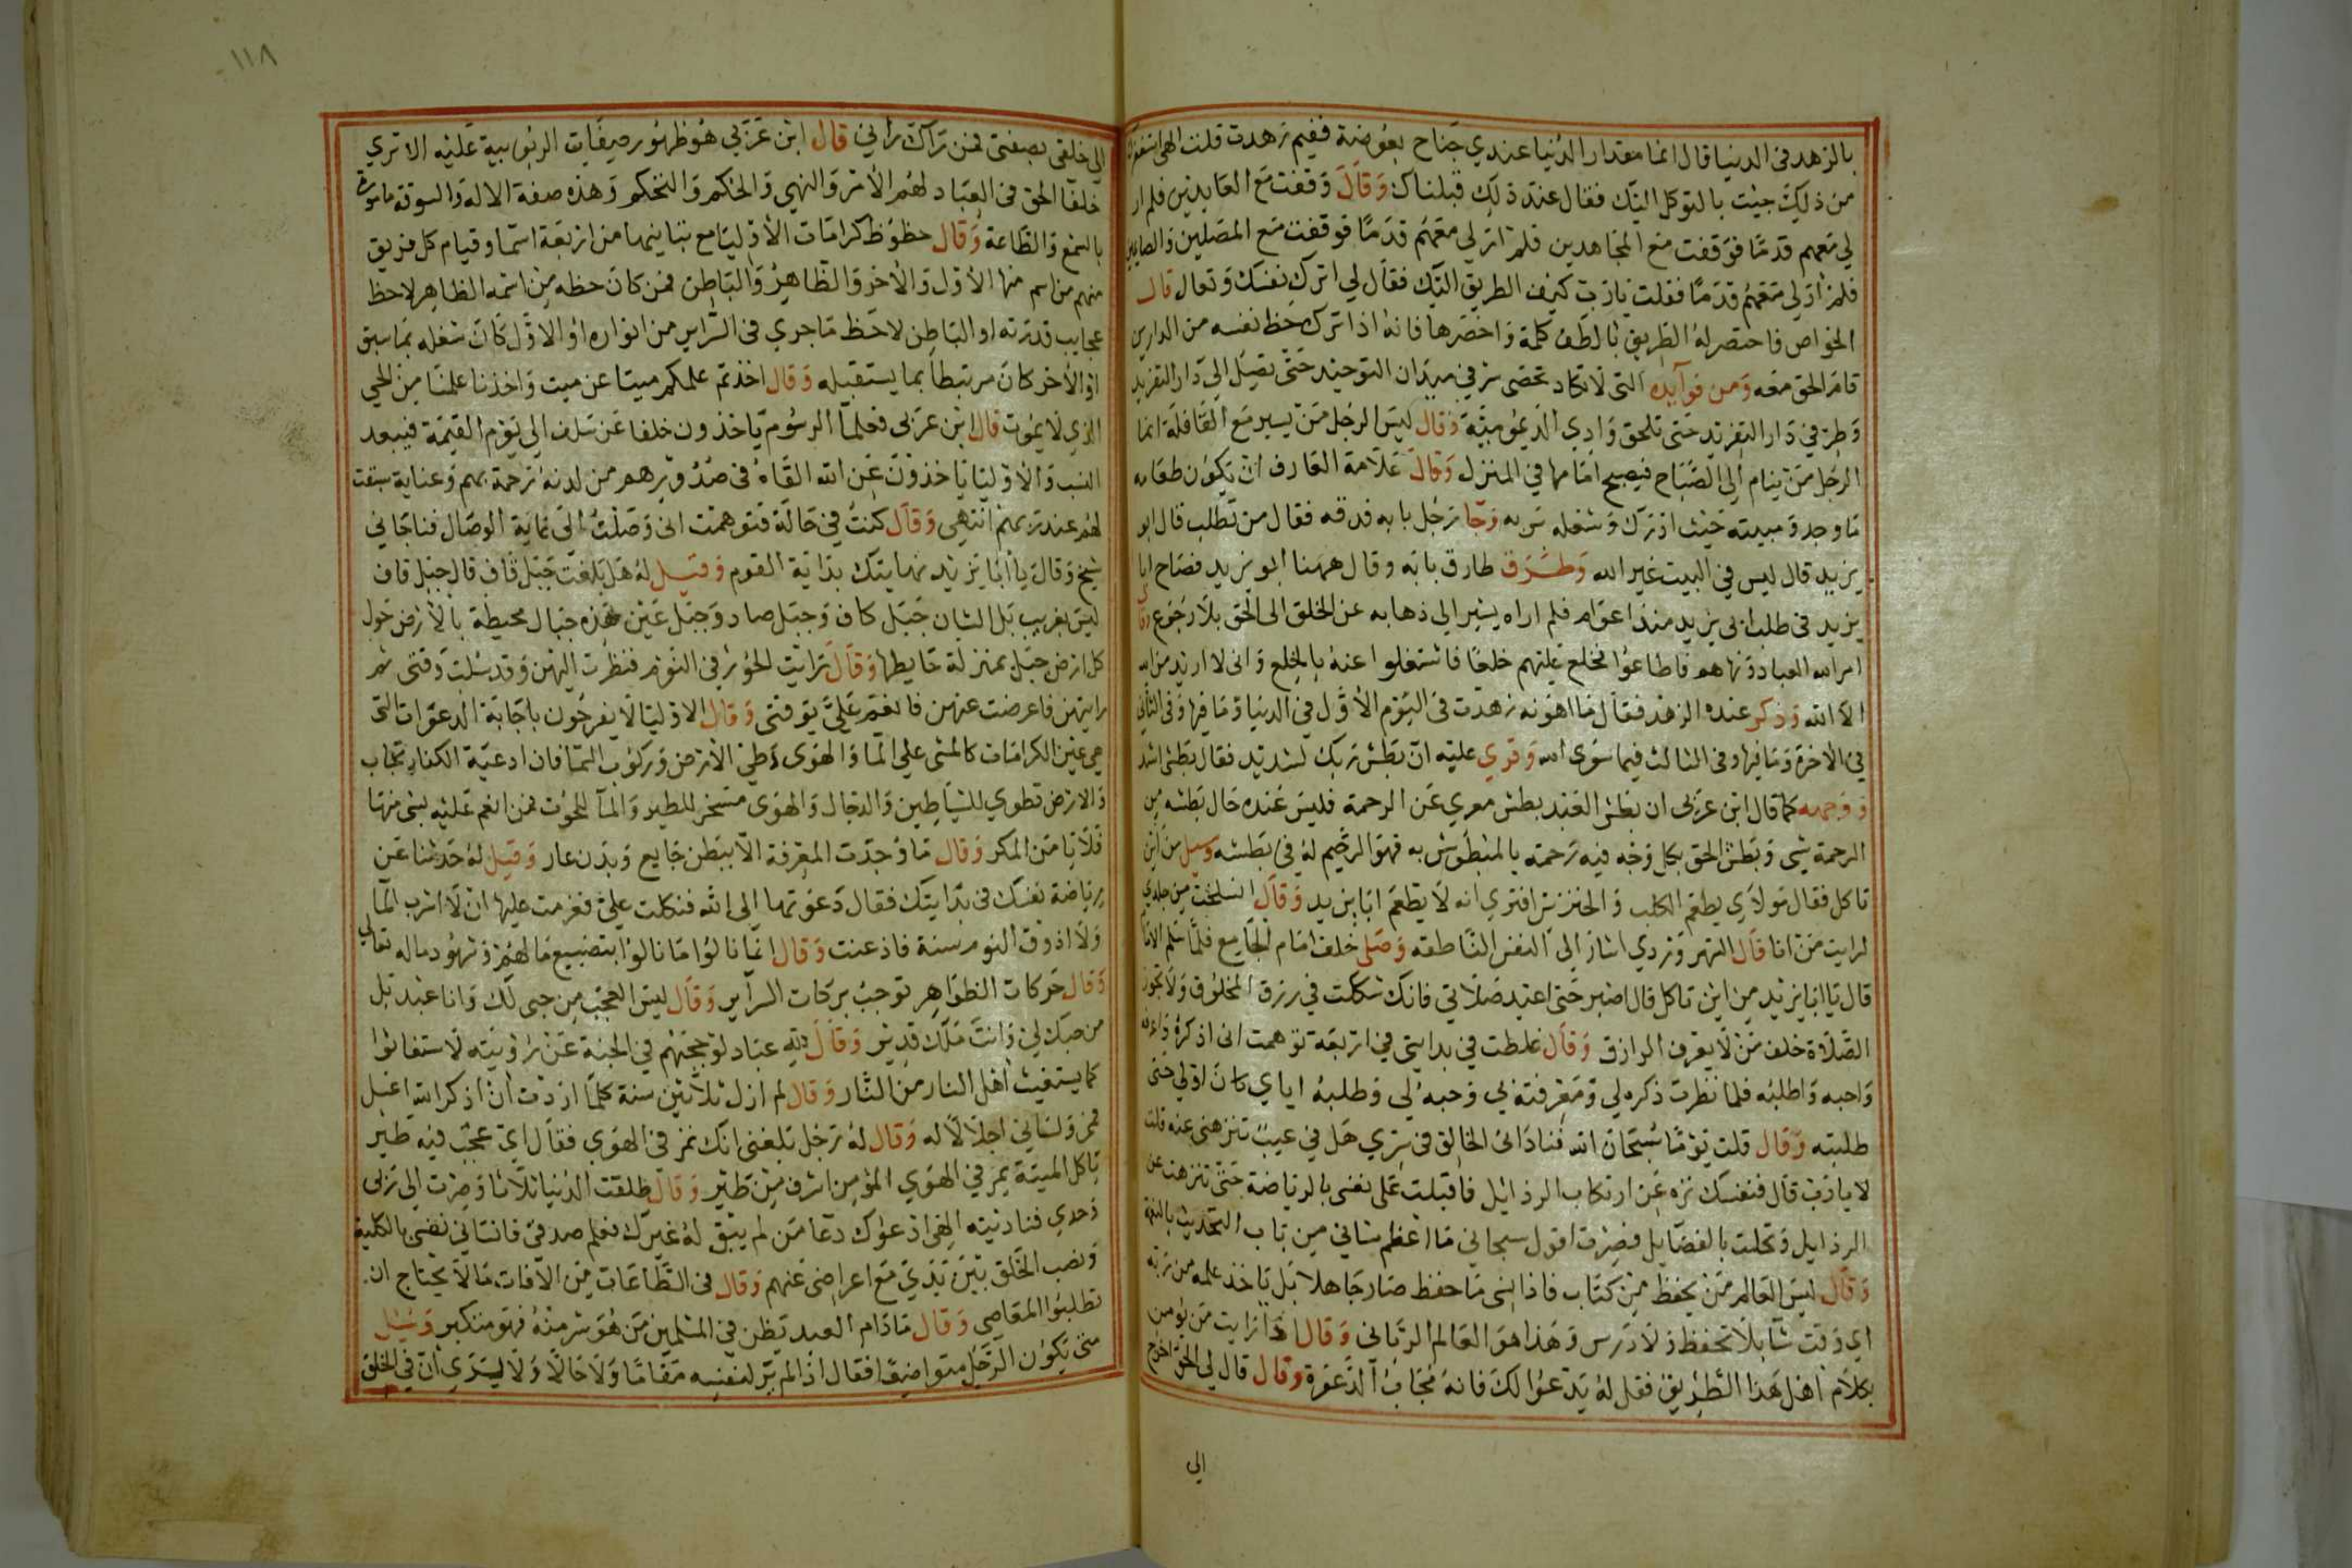 ١١٨
بالزهد في الدنيا قال انما مقدار الدنيا عندي جناح بعوضة ففيم زهدت قلت الهي استغفرك
من ذلك جيت بالتوكل اليك فقال عند ذلك قبلناك وقال وقفت مع العابدين فلم ار
لي معهم قدما فوقفت مع المجاهدين فلم ار لي معهم قدما فوقفت مع المصلين والصايمين
فلم ار لي معهم قدما فقلت يا رب كيف الطريق اليك فقال لي اترك نفسك وتعال قال
الخواص فاختصر له الطريق بالطف كلمة واخصرها فانه اذا ترك حظ نفسه من الدارين
قام الحق معه ومن فوايده التي لا تكاد تحصى سر في ميدان التوحيد حتى تصل الى دار التفريد
وطر في دار التفريد حتى تلحق وادي الديمومية وقال ليس الرجل من يسير مع القافلة انما
الرجل من ينام الى الصباح فيصبح امامها في المنزل وقال علامة العارف ان يكون طعامه
ما وجد ومبيته حيث ادرك وشغله بربه وجا رجل بابه فدقه فقال من تطلب قال ابو
يزيد قال ليس في البيت غير الله وطرق طارق بابه وقال ههنا ابو يزيد فصاح ابا
يزيد في طلب ابي يزيد منذ اعوام فلم اراه يشير الى ذهابه عن الخلق الى الحق بلا رجوع وقال
امر الله العباد ونهاهم فاطاعوا فخلع عليهم خلعا فاشتغلوا عنه بالخلع واني لا اريد من الله
الا الله وذكر عنده الزهد فقال ما اهونه زهدت في اليوم الاول في الدنيا وما فيها وفي الثاني
في الاخرة وما فيها وفي الثالث فيما سوى الله وقري عليه ان بطش ربك لشديد فقال بطشي اشد
ووجهه كما قال ابن عربي ان بطش العبد بطش معري عن الرحمة فليس عنده حال بطشه من
الرحمة شي وبطش الحق بكل وجه فيه رحمته بالمبطوش به فهو الرحيم له في بطشه وسيل من اين
تاكل فقال مولاي يطعم الكلب والخنزير افتري انه لا يطعم ابا يزيد وقال انسلخت من جلدي
لرايت من انا قال السهروردي اشار الى النفس الناطقه وصلى خلف امام الجامع فلما سلم الامام
قال يا ابا يزيد من اين تاكل قال اصبر حتى اعيد صلاتي فانك شككت في رزق المخلوق ولا تجوز
الصلاة خلف من لا يعرف الرازق وقال غلطت في بدايتي في اربعة توهمت اني اذكره واعرفه
واحبه واطلبه فلما نظرت ذكره لي ومعرفته بي وحبه لي وطلبه اياي كان اولى حتى
طلبته وقال قلت يوما سبحان الله فناداني الخالق في سري هل في عيب تنزهني عنه قلت
لا يارب قال فنفسك نزه عن ارتكاب الرذائل فاقبلت على نفسي بالرياضة حتى تنزهت عن
الرذايل وتحلت بالفضايل فصرت اقول سبحاني ما اعظم شاني من باب التحديث بالنعمة
وقال ليس العالم من يحفظ من كتاب فاذا نسي ما حفظ صار جاهلا بل ياخذ علمه من ربه
اي وقت شا بلا تحفظ ولا درس وهذا هو العالم الرباني وقال اذا رايت من يؤمن
بكلام اهل هذا الطريق فقل له يدعوا لك فانه مجاب الدعوة وقال قال لي الحق اخرج
الى
الي خلقي بصفتي فمن رآك رآني قال ابن عربي هو ظهور صفات الربوبية عليه الا تري
خلفا الحق في العباد لهم الامر والنهي والحكم والتحكم وهذه صفة الاله والسوقة مامورة
بالسمع والطاعة وقال حظوظ كرامات الاوليا مع تباينها من اربعة اسما وقيام كل فريق
منهم من اسم منها الاول والاخر والظاهر والباطن فمن كان حظه من اسمه الظاهر لاحظ
عجايب قدرته او الباطن لاحظ ما جري في السراير من انواره او الاول كان شغله بما سبق
او الاخر كان مرتبطا بما يستقبله وقال اخذتم علمكم ميتا عن ميت واخذنا علمنا من الحي
الذي لا يموت قال ابن عربي فعلما الرسوم ياخذون خلفا عن سلف الى يوم القيمة فيبعد
النسب والاوليا ياخذون عن الله القاه في صدورهم من لدنه رحمة بهم وعناية سبقت
لهم عند ربهم انتهى وقال كنت في حالة فتوهمت اني وصلت الى نهاية الوصال فناجاني
شيخ وقال يا ابا يزيد نهايتك بداية القوم وقيل له هل بلغت جبل قاف قال جبل قاف
ليس بغريب بل الشان جبل كاف وجبل صاد وجبل عين هذه جبال محيطة بالارض حول
كل ارض جبل بمنزلة حايطها وقال رايت الحور في النوم فنظرت اليهن وقد سلبت وقتي ثم
رايتهن فاعرضت عنهن فانعم علي بوقتي وقال الاوليا لا يفرحون باجابة الدعوات التي
هي عين الكرامات كالمشي على الما والهوى وطي الارض وركوب السما فان ادعية الكفار تجاب
والارض تطوي للشياطين والدجال والهوى مسخر للطير والمآ للحوت فمن انعم عليه بشي منها
فلا يامن المكر وقال ما وجدت المعرفة الا ببطن جايع وبدن عار وقيل له حدثنا عن
رياضة نفسك في بدايتك فقال دعوتها الى الله فنكلت علي فعزمت عليها ان لا اشرب المآ
ولا اذوق النوم سنة فاذعنت وقال انما نالوا ما نالوا بتضييع مالهم وشهود ماله تعالى
وقال حركات الظواهر توجب بركات السراير وقال ليس العجب من حبي لك وانا عبد بل
من حبك لي وانت ملك قدير وقال لله عباد لو حجبهم في الجنة عن رؤيته لاستغاثوا
كما يستغيث اهل النار من النار وقال لم ازل ثلاثين سنة كلما اردت ان اذكر الله اغسل
فمي ولساني اجلالا له وقال له رجل بلغني انك تمر في الهوي فقال اي عجب فيه طير
ياكل الميتة يمر في الهوي المؤمن اشرف من طير وقال طلقت الدنيا ثلاثا وصرت الى ربي
وحدي فناديته الهي ادعوك دعا من لم يبق له غيرك فعلم صدقي فانساني نفسي بالكلية
ونصب الخلق بين يدي مع اعراضي عنهم وقال في الطاعات من الافات ما لا يحتاج ان
تطلبوا المعاصي وقال مادام العبد يظن في المسلمين من هو شر منه فهو متكبر وسيل
متى يكون الرجل متواضعا فقال اذا لم ير لنفسه مقاما ولا حالا ولا يري ان في الخلق